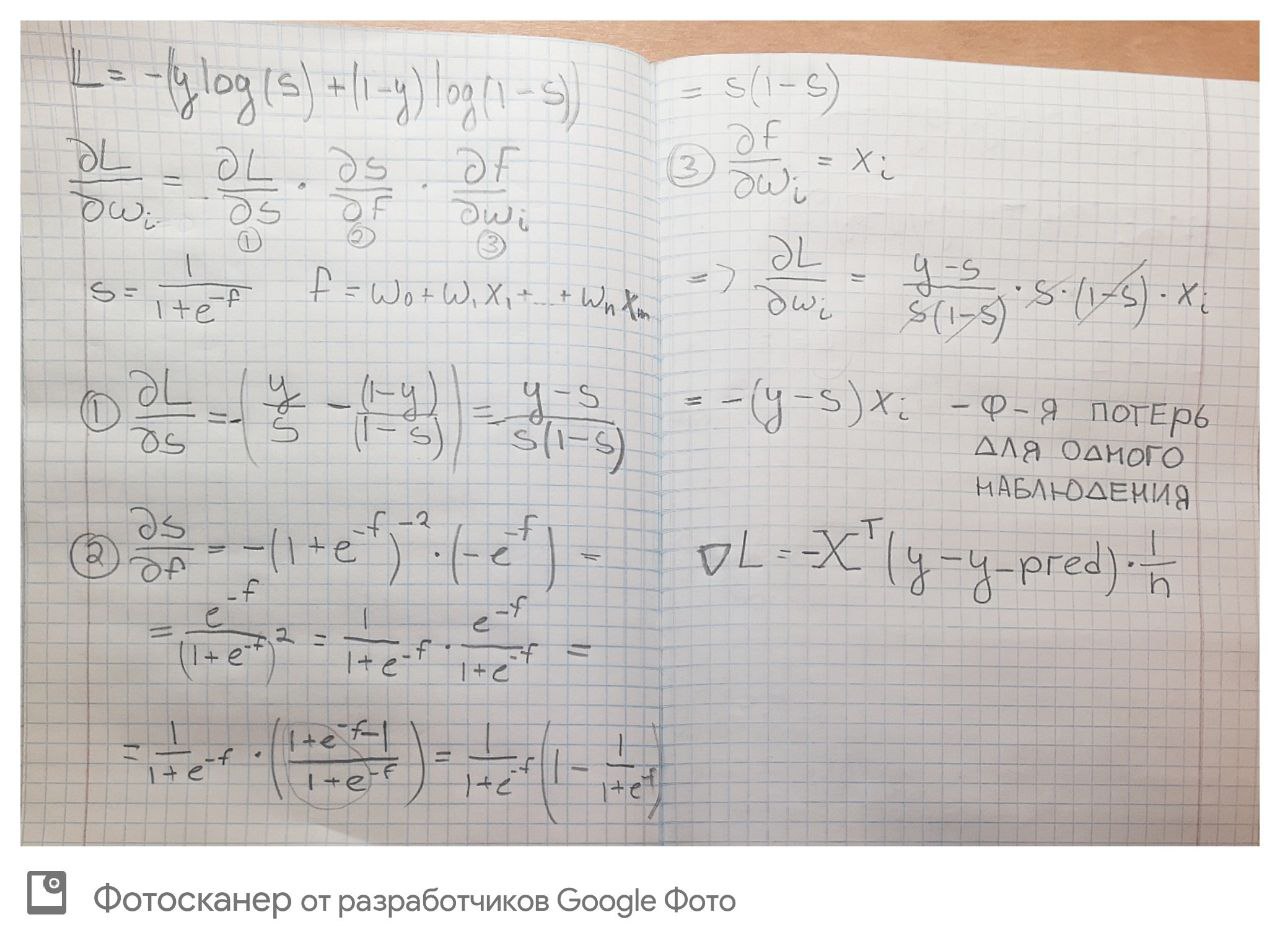 L = -(y log(s) + (1-y) log(1-s))
∂L/∂wᵢ = ∂L/∂s · ∂s/∂f · ∂f/∂wᵢ
① ② ③
s = 1/(1+e^(-f)) f = w₀ + w₁x₁ + ... + wₙxₘ
① ∂L/∂s = -(y/s - (1-y)/(1-s)) = y-s/s(1-s)
② ∂s/∂f = -(1+e^(-f))^(-2) · (-e^(-f)) =
= e^(-f)/(1+e^(-f))² = 1/(1+e^(-f)) · e^(-f)/(1+e^(-f)) =
= 1/(1+e^(-f)) · ((1+e^(-f)-1)/(1+e^(-f))) = 1/(1+e^(-f)) (1 - 1/(1+e^(-f)))
= s(1-s)
③ ∂f/∂wᵢ = xᵢ
=> ∂L/∂wᵢ = (y-s)/(s(1-s)) · s · (1-s) · xᵢ
= -(y-s)xᵢ - Ф-Я ПОТЕРЬ
ДЛЯ ОДНОГО
НАБЛЮДЕНИЯ
∇L = -Xᵀ(y - y_pred) · 1/n
Фотосканер от разработчиков Google Фото